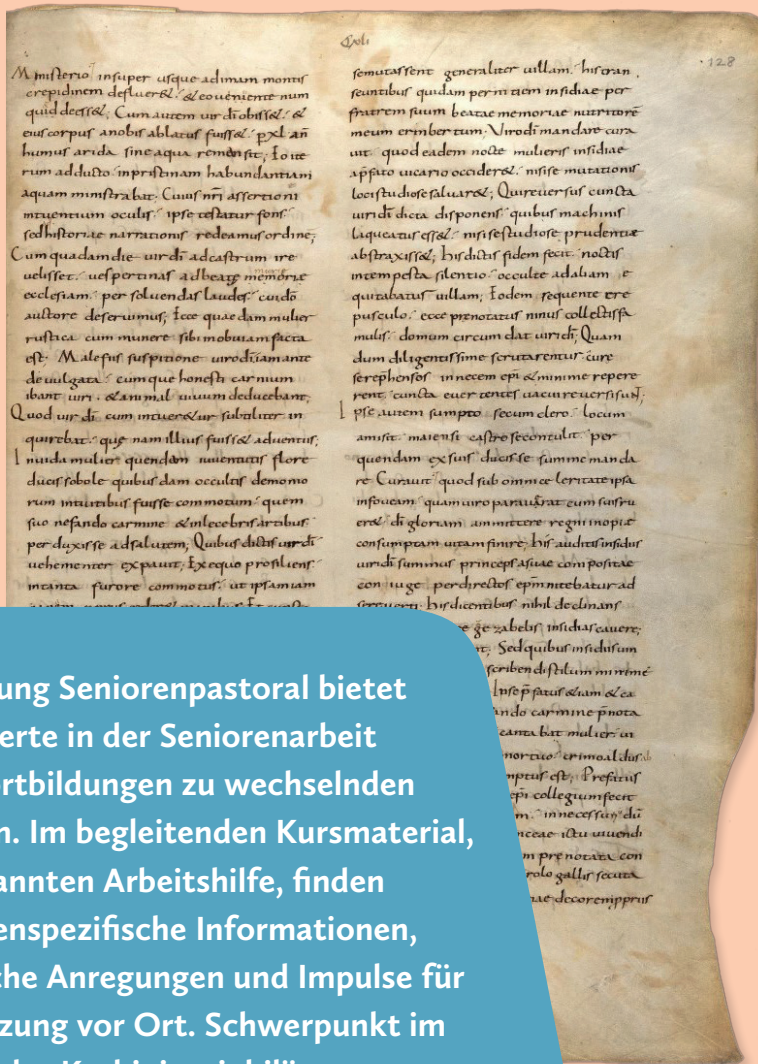 Cxli
128
Ministerio insuper usque ad imam montis
crepidinem deflueret. & eo ueniente num
quid deesset; Cum autem uir di obisset. &
eius corpus a nobis ablatus fuisset. p xl an
humus arida sine aqua remansit; Io ite
rum adducto in pristinam habundantiam
aquam ministrabat; Cuius nri assertioni
intuentium oculis ipse testatur fons
sed historiae narrationis redeamus ordine;
Cum quadam die uir di ad castrum ire
uelisset. uespertinas ad beatę memorię
ecclesiam. per soluendas laudes. cui do
auctore deseruimus; Ecce quae dam mulier
rustica cum munere sibi in obuiam facta
est. Malefus suspitione uiro di iam ante
deuulgata. cumque honesti carnium
ibant uiri. & animal uiuum deducebant;
Quod uir di cum intueretur subtiliter in
quirebat. quę nam illius fuisset aduentus;
Inuida mulier quendam iuuentutis flore
ducis sobole quibus dam occultis demonio
rum intuitibus fuisse commotum. quem
suo nefando carmine & inlecebris artibus
per duxisse ad salutem; Quibus dictis uir di
uehementer expauit; Ex equo prosiliens
in tanta furore commotus. ut ipsam iam
semutassent generaliter uillam. his tran
seuntibus quidam per nitiem insidiae per
fratrem suum beatae memoriae nutritore
meum erimbertum. Viro di mandare cura
uit. quod eadem nocte mulieris insidiae
apsato uicario occideret. nisi se mutationis
loci studiose saluaret; Qui reuersus cuncta
uiri di dicta disponens. quibus machinis
laqueatus esset. nisi se studiose prudentiæ
abstraxisset; his dictis fidem fecit. noctis
intempesta silentio. occulte ad aliam e
quitabatus uillam; Eodem sequente cre
pusculo. ecce prenotatus ninus collectis fa
mulis. domum circumdat uiri di; Quam
dum diligentissime scrutarentur cure
serephensos in necem epi & minime repere
rent. cuncta euertentes uacui reuersi sunt;
Ipse autem sumpto secum clero. locum
amisit. maiensi castro se contulit. per
quendam ex suis ducisse summe manda
re Curauit quod sub omni celeritate ipsa
in foueam quam uiro parauerat eum suis ru
eret. di gloriam ammittere regni inopiæ
consumptam uitam finire; his auditis insidiis
uiri di summus princeps a suae compositae
coniuge. per directos epm nitebatur ad
se reuerti. his dicentibus nihil declinans
ge zabelis insidias cauere;
Sed quibus insidiis um
scriben di stilum minime
Ipse p fatus etiam & ea
ando carmine p nota
canta bat mulier. in
mortuo. crimoaldus
mptus est; Prefatus
epi collegium fecit
m. in necessum du
nceae ictu uiuendi
m prenotata con
rolo gallis secuta
iae decorem pprius
ung Seniorenpastoral bietet
erte in der Seniorenarbeit
rtbildungen zu wechselnden
n. Im begleitenden Kursmaterial,
annten Arbeitshilfe, finden
enspezifische Informationen,
che Anregungen und Impulse für
zung vor Ort. Schwerpunkt im